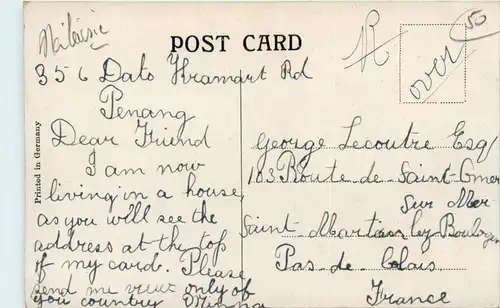 Malaisie
POST CARD
R
50
over
356 Dato Kramart Rd
Penang
Dear Friend
I am now
living in a house,
as you will see the
address at the top
of my card. Please
send me view only of
you country
Printed in Germany
George Lecoutre Esq
103 Route de Saint-Omer
Sur Mer
Saint Martins lez Boulogne
Pas-de Calais
France